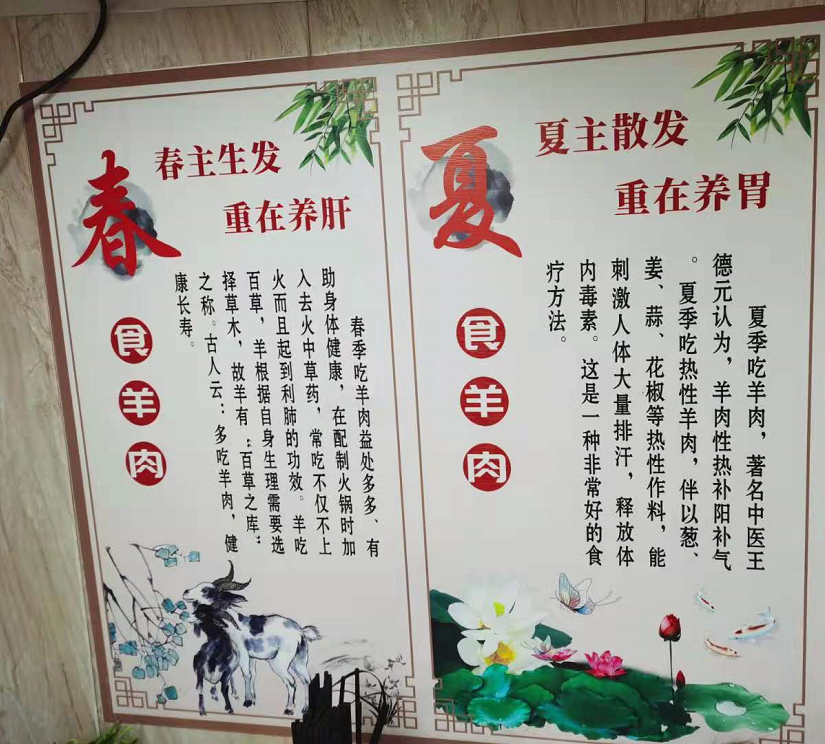 春
春主生发
重在养肝
食羊肉
春季吃羊肉益处多多、有
助身体健康，在配制火锅时加
入去火中草药，常吃不仅不上
火而且起到利肺的功效。羊吃
百草，羊根据自身生理需要选
择草木，故羊有：百草之库；
之称。古人云：多吃羊肉，健
康长寿。
夏
夏主散发
重在养胃
食羊肉
夏季吃羊肉，著名中医王
德元认为，羊肉性热补阳补气
。夏季吃热性羊肉，伴以葱、
姜、蒜、花椒等热性作料，能
刺激人体大量排汗，释放体
内毒素。这是一种非常好的食
疗方法。